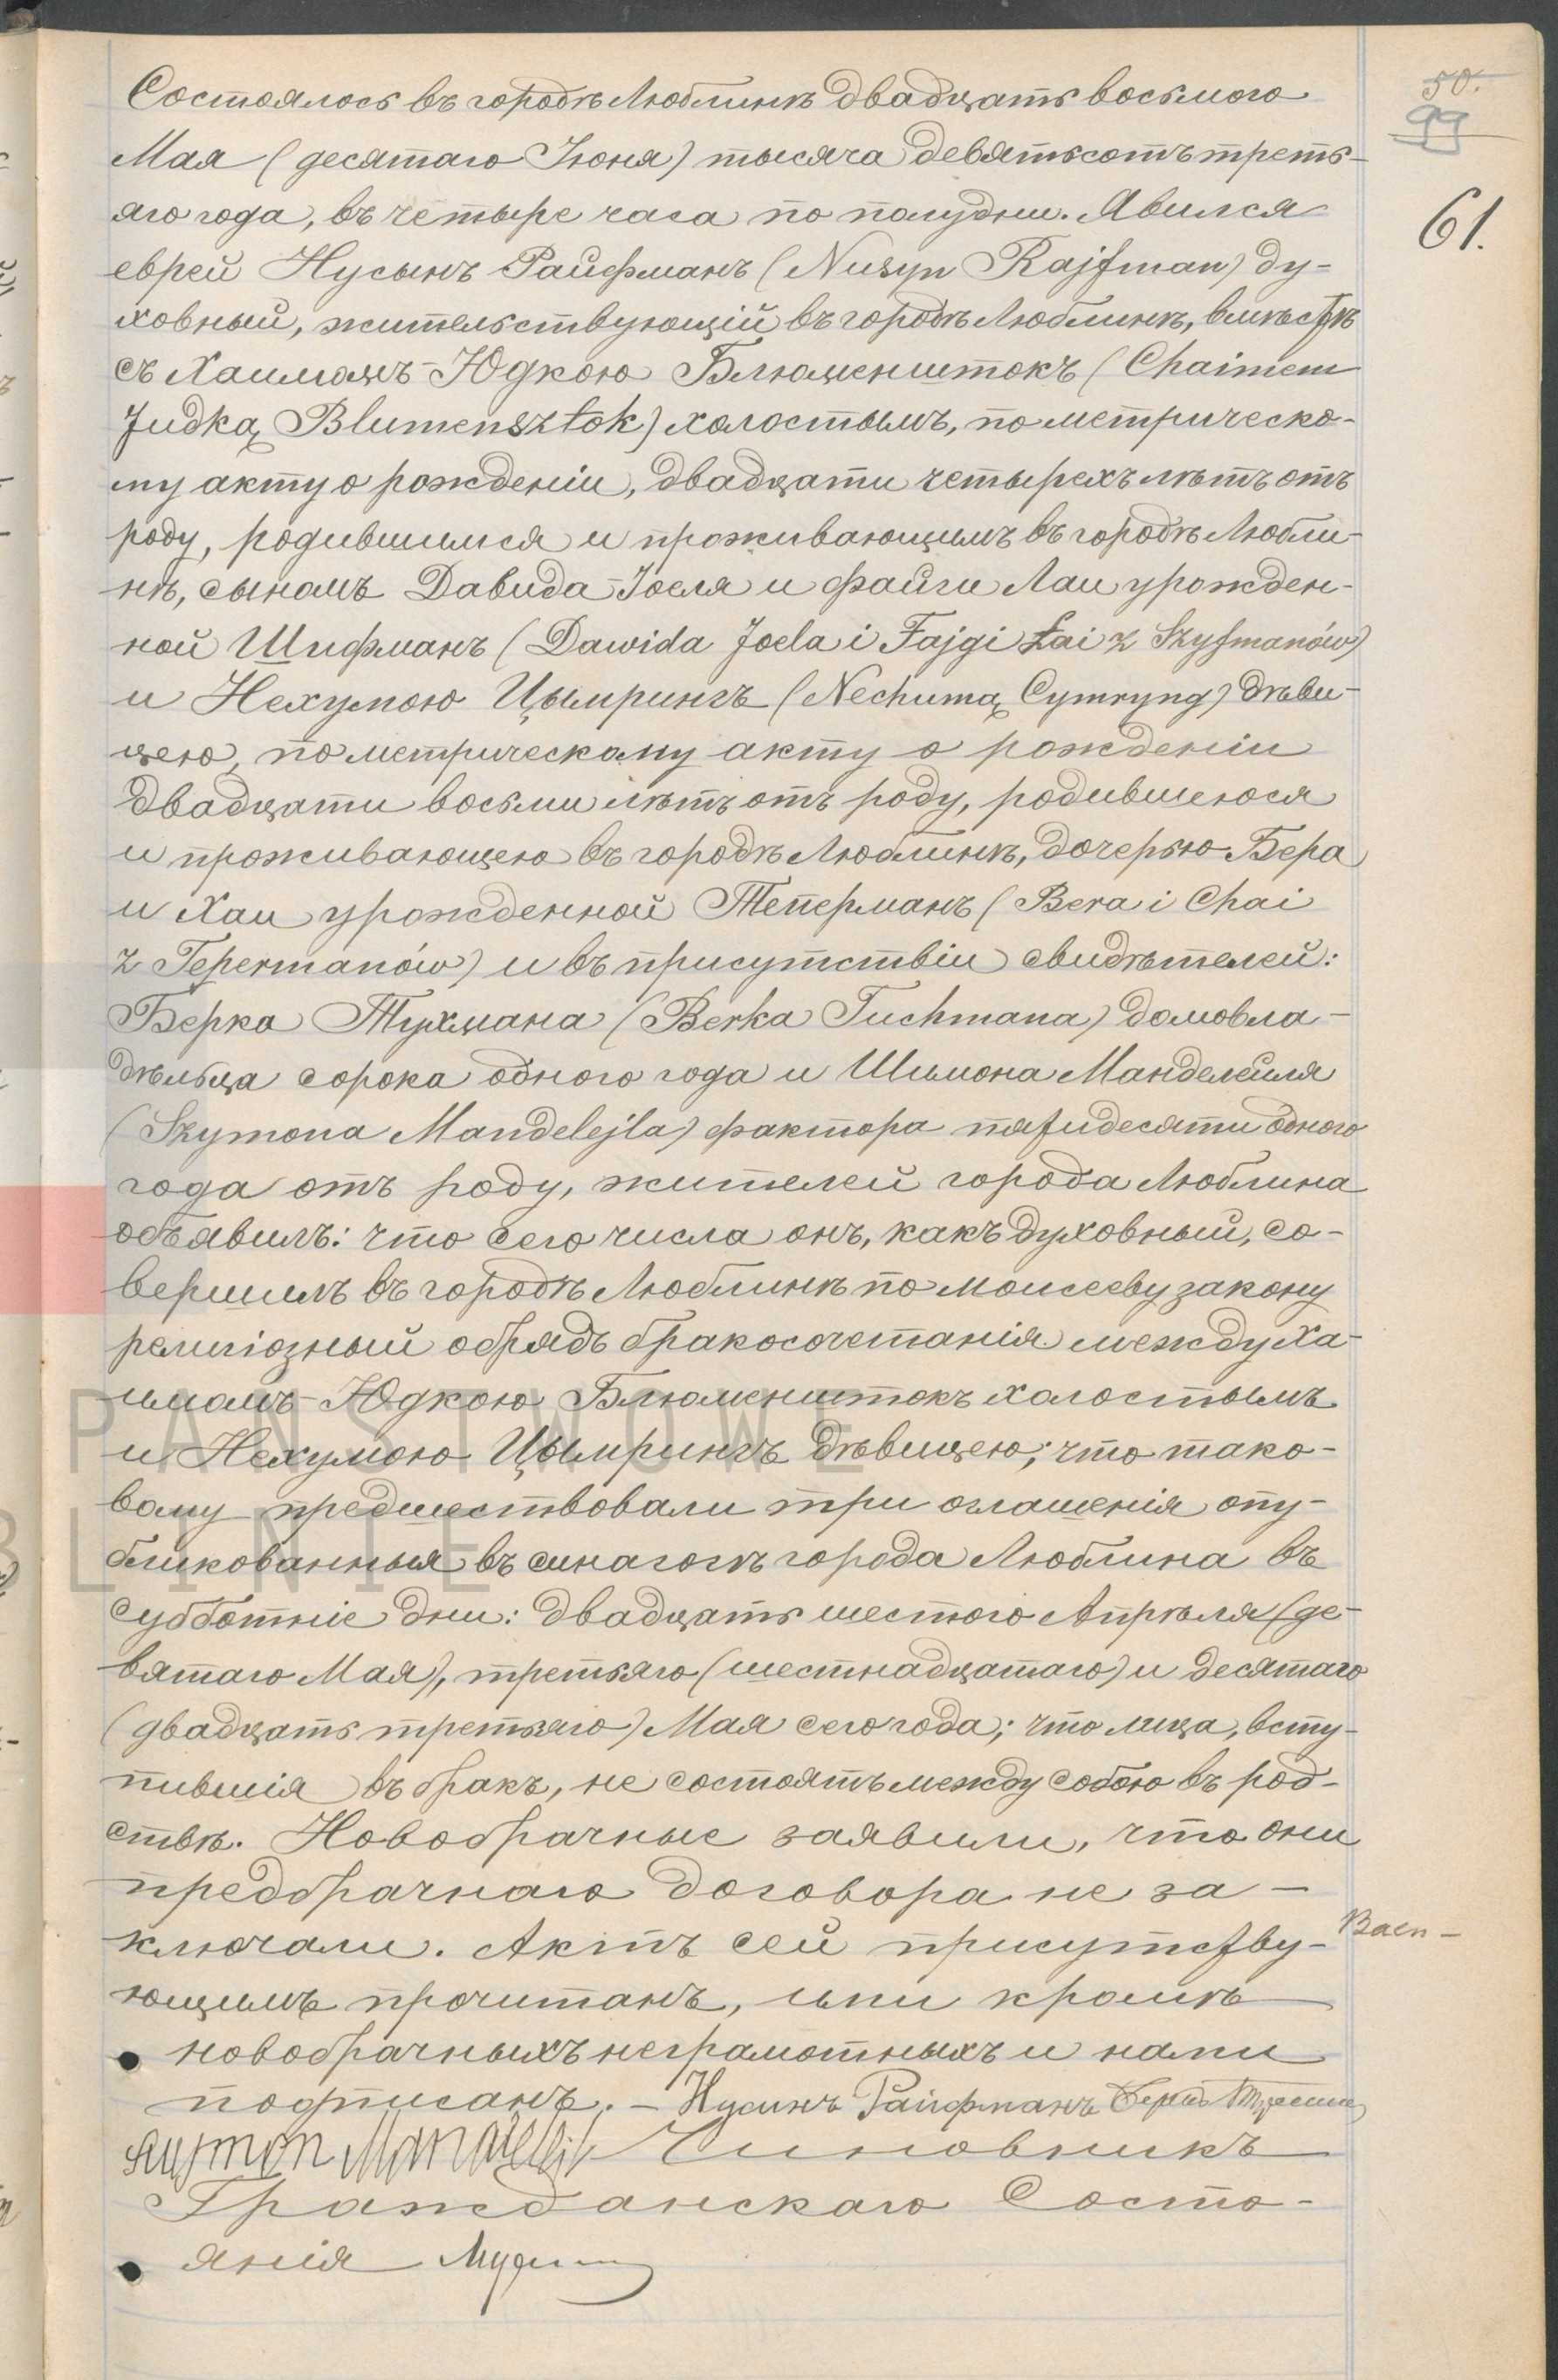 50.
99
61.
Состоялось въ городѣ Люблинѣ двадцать восьмого
Мая (десятаго Іюня) тысяча девятьсотъ треть-
яго года, въ четыре часа по полудни. Явился
еврей Нусынъ Райфманъ (Nusyn Rajfman) ду-
ховный, жительствующій въ городѣ Люблинѣ, вмѣстѣ
съ Хаимомъ-Юдкою Блюменштокъ (Chaimem
Judką Blumensztok) холостымъ, по метрическо-
му акту о рожденіи, двадцати четырехъ лѣтъ отъ
роду, родившимся и проживающимъ въ городѣ Любли-
нѣ, сыномъ Давида-Іоеля и Файги Лаи урожден-
ной Шифманъ (Dawida Joela i Fajgi Łai z Szyfmanów)
и Нехумою Цымрингъ (Nechumą Cymryng) дѣви-
цею, по метрическому акту о рожденіи
двадцати восьми лѣтъ отъ роду, родившеюся
и проживающею въ городѣ Люблинѣ, дочерью Бера
и Хаи урожденной Теперманъ (Bera i Chai
z Tepermanów) и въ присутствіи свидѣтелей:
Берка Тухмана (Berka Tuchmana) домовла-
дѣльца сорока одного года и Шимона Манделейля
(Szymona Mandelejla) фактора пятидесяти одного
года отъ роду, жителей города Люблина
объявилъ: что сего числа онъ, какъ духовный, со-
вершилъ въ городѣ Люблинѣ по Моисееву закону
религіозный обрядъ бракосочетанія между Ха-
имомъ-Юдкою Блюменштокъ холостымъ
и Нехумою Цымрингъ дѣвицею; что тако-
вому предшествовали три оглашенія опу-
бликованныя въ синагогѣ города Люблина въ
субботніе дни: двадцать шестого Апрѣля (де-
вятаго Мая), третьяго (шестнадцатаго) и десятаго
(двадцать третьяго) Мая сего года; что лица, всту-
пившія въ бракъ, не состоятъ между собою въ род-
ствѣ. Новобрачные заявили, что они
предбрачнаго договора не за-
ключали. Актъ сей присутству-
ющимъ прочитанъ, ими кромѣ
новобрачныхъ неграмотныхъ и нами
подписанъ. — Нусинъ Райфманъ
Szymon Mandelejl Чиновникъ
Гражданскаго Состо-
янія
PAŃSTWOWE
LINIE